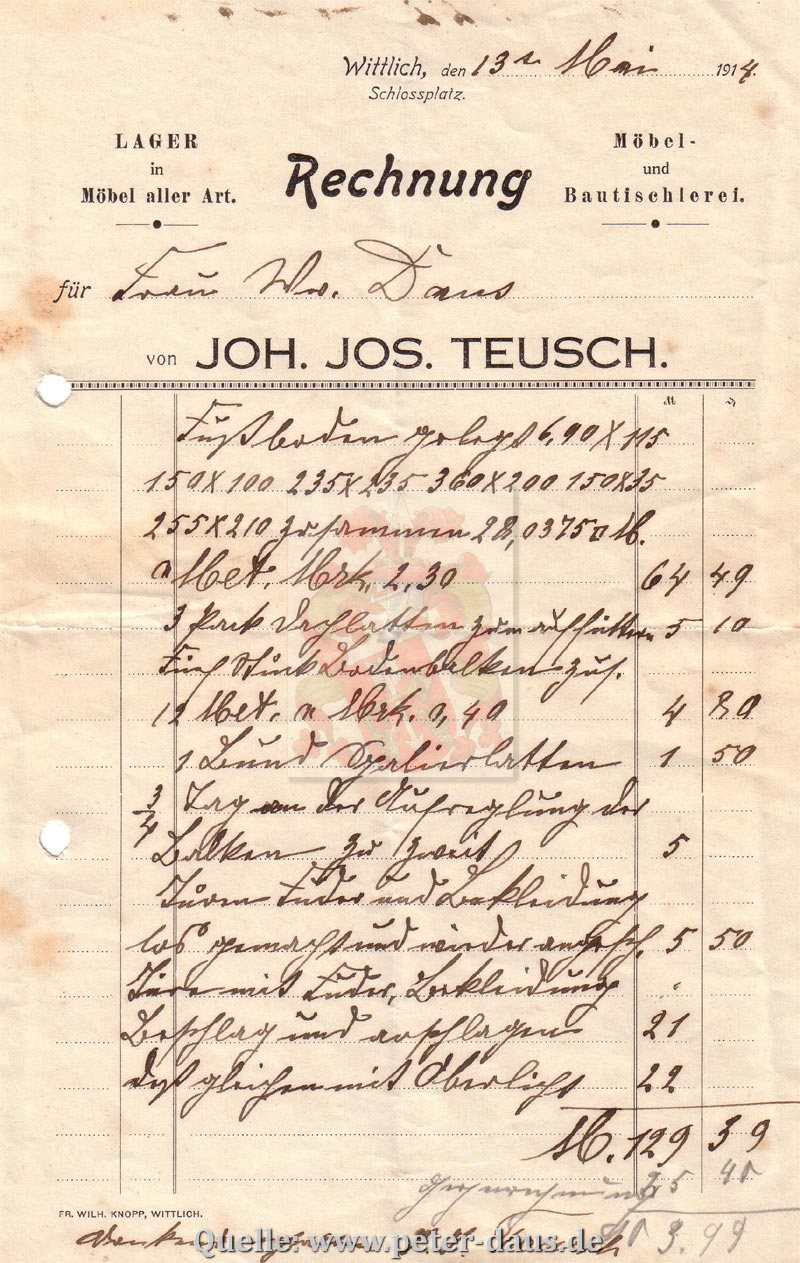 Wittlich, den 13t. Mai 1914.
Schlossplatz.
LAGER
in
Möbel aller Art.
Rechnung
Möbel-
und
Bautischlerei.
für Frau Ww. Daus
von JOH. JOS. TEUSCH.
M ₰
Fußboden gelegt 6,90 X 115
150 X 100 235 X 235 360 X 200 150 X 35
255 X 210 zusammen 28,0375 □ M.
a Met. Mrk. 2,30 64 49
3 Pack Dachlatten zum auffüttern 5 10
Fünf Stück Bodenbalken zus.
12 Met. a Mrk. 0,40 4 80
1 Bund Spalierlatten 1 50
3/4 Tag an der Aufreglung der
Balken zu zweit 5
Türen Futer und Bekleidung
los gemacht und wieder angesch. 5 50
Türe mit Futer, Bekleidung
Beschlag und anschlagen 21
deßgleichen mit Oberlicht 22
M. 129 39
Gegenrechnung 25 40
103.99
FR. WILH. KNOPP, WITTLICH.
Quelle: www.peter-daus.de